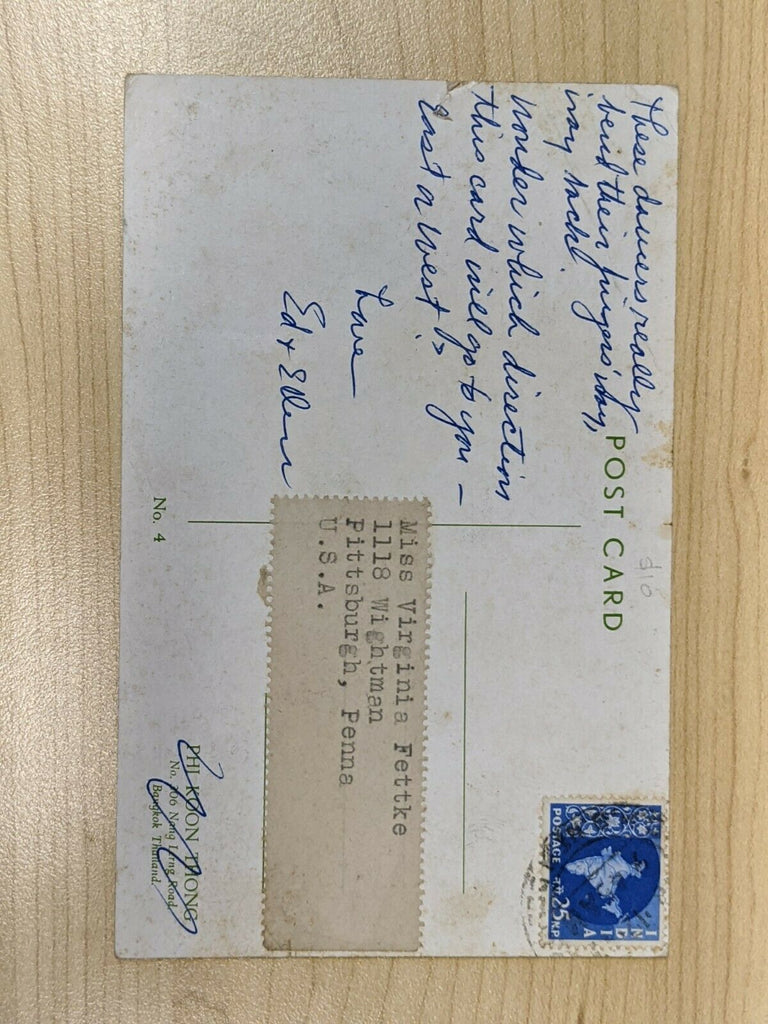 These dancers really
bend their fingers' way,
way back!
Wonder which direction
this card will go to you –
East or West?
Love
Ed &
POST CARD
d10
Miss Virginia Fettke
1118 Wightman
Pittsburgh, Penna
U.S.A.
No. 4
PHI KOON THONG
No. 706 Nang Lerng Road
Bangkok Thailand.
INDIA
POSTAGE
25 NP